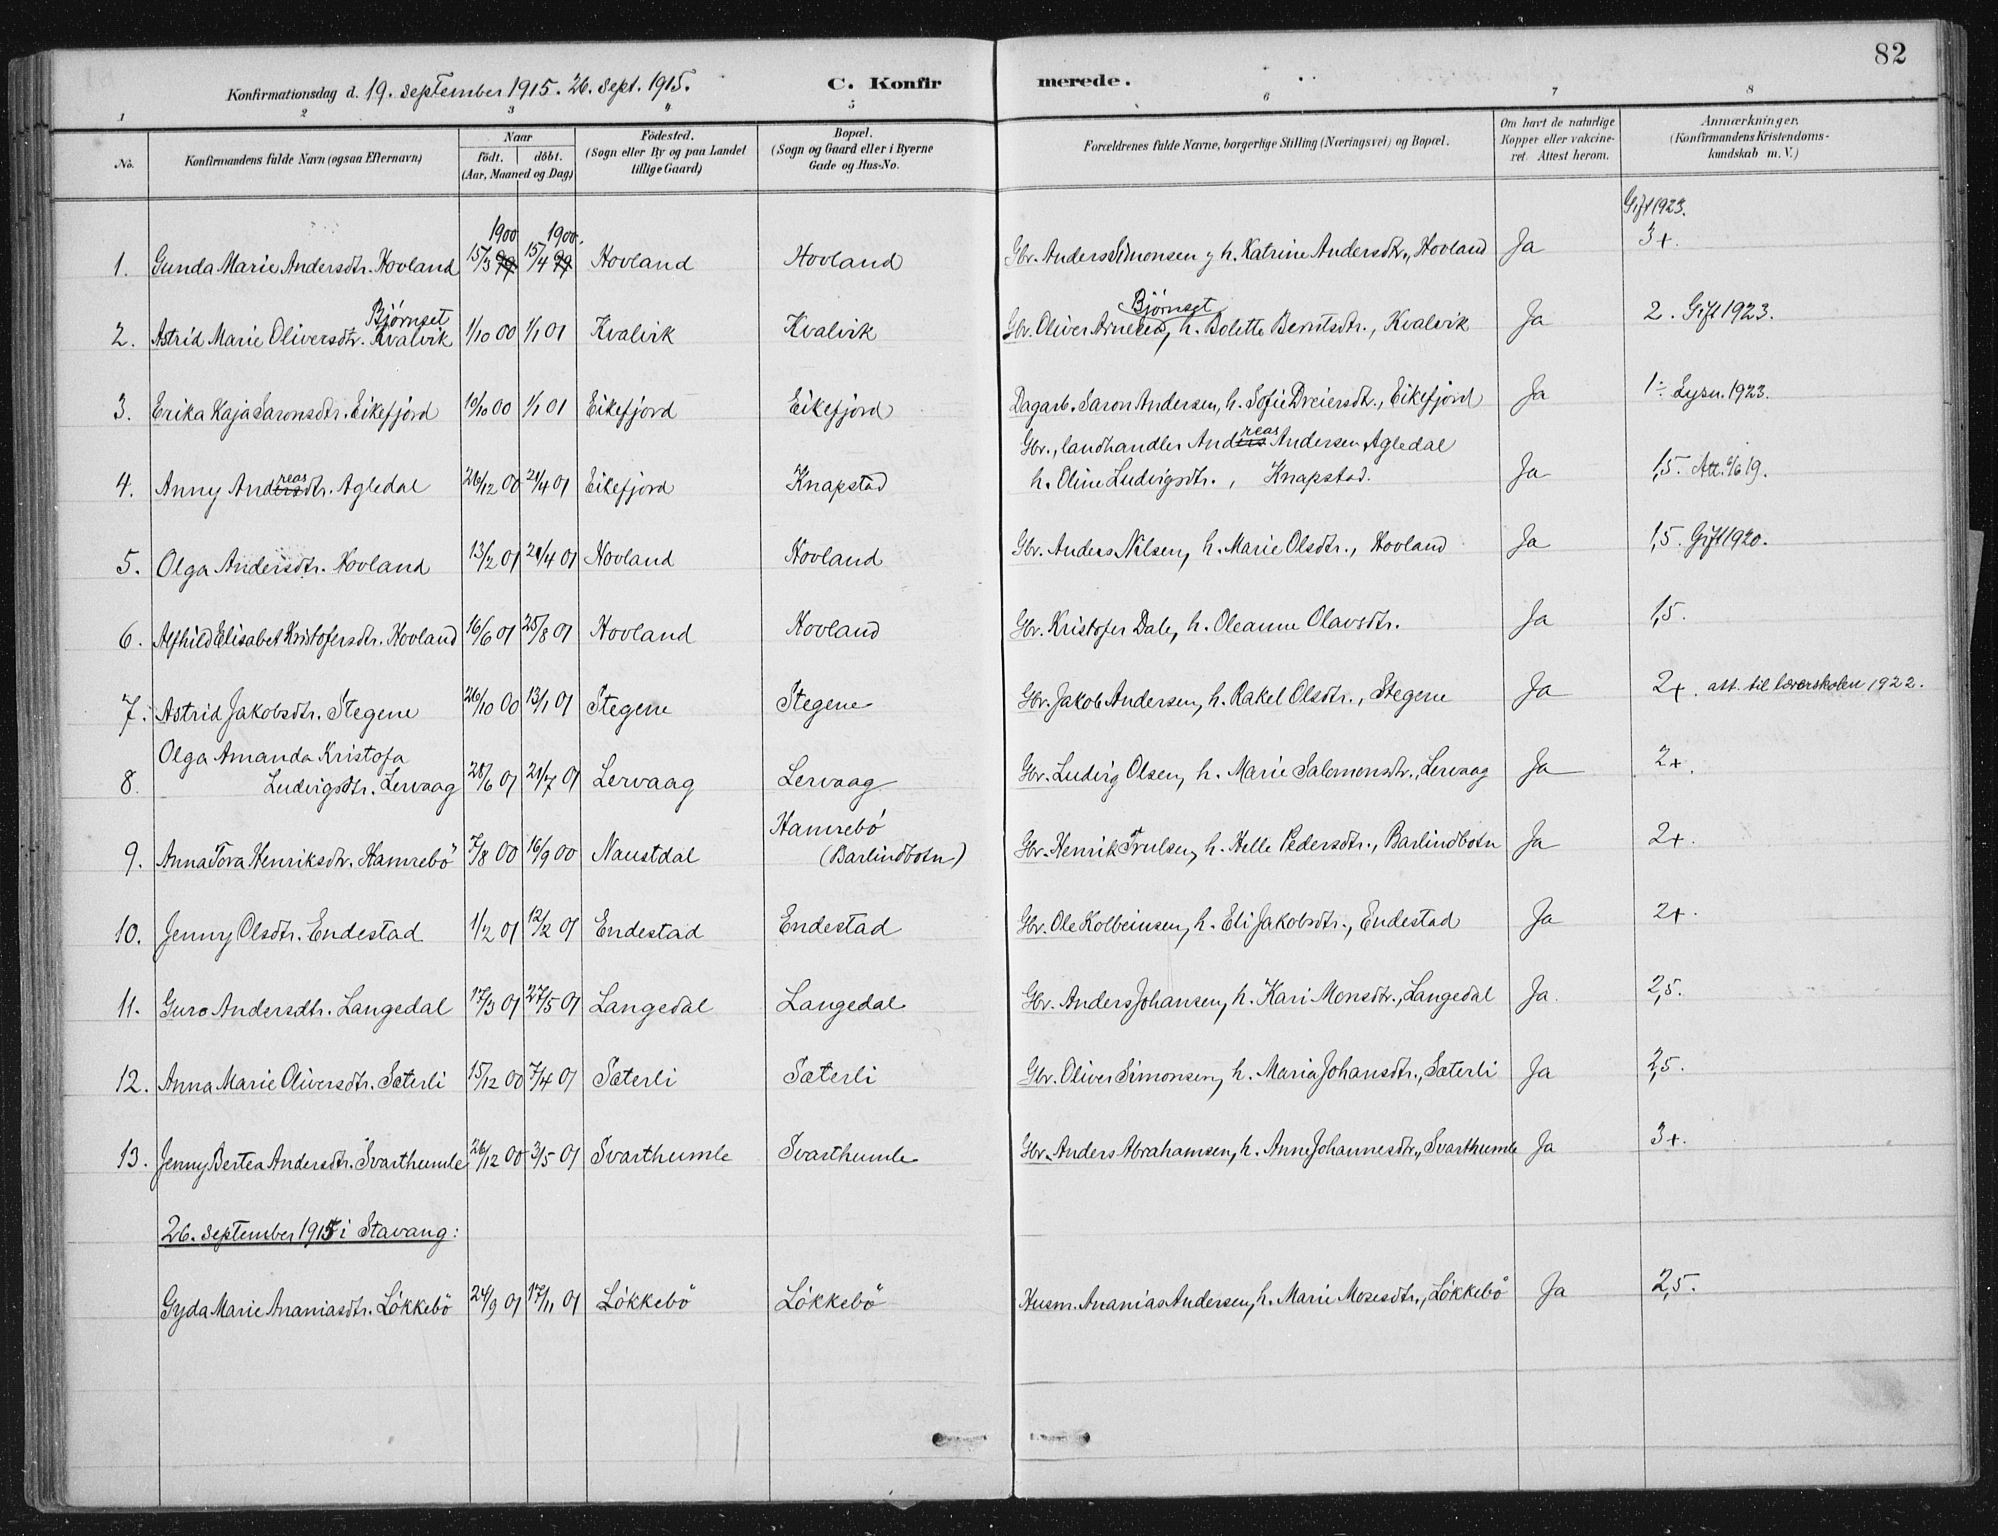 82
Konfirmationsdag d. 19. september 1915. 26. sept. 1915. C. Konfirmerede.
1 2 3 " 5 6 7 8
No.
Konfirmandens fulde Navn (ogsaa Efternavn)
Naar
födt. döbt.
(Aar, Maaned og Dag)
Födested.
(Sogn eller By og paa Landet
tillige Gaard)
Bopæl.
(Sogn og Gaard eller i Byerne
Gade og Hus-No.
Forældrenes fulde Navne, borgerlige Stilling (Næringsvei) og Bopæl.
Om havt de naturlige
Kopper eller vakcine-
ret. Attest herom.
Anmærkninger.
(Konfirmandens Kristendoms-
kundskab m. V.)
1900 1900. Gift 1923.
1. Gunda Marie Andersdtr. Hovland 15/3 99 15/4 99 Hovland Hovland Gbr. Anders Simonsen g h. Katrine Andersdtr., Hovland Ja 3+.
Bjørnset Bjørnset
2. Astrid Marie Oliversdtr. Kvalvik 1/10 00 1/1 01 Kvalvik Kvalvik Gbr. Oliver Arnesen, h. Bolette Berntsdtr., Kvalvik Ja 2. Gift 1923.
3. Erika Kaja Saronsdtr. Eikefjord 10/10 00 1/1 01 Eikefjord Eikefjord Dagarb. Saron Andersen, h. Sofie Dreiersdtr., Eikefjord Ja 1÷ Lysn. 1923.
Gbr., landhandler Andersreas Andersen Agledal
4. Anny Andersreasdtr. Agledal 26/12 00 21/4 01 Eikefjord Knapstad h. Oline Ludvigsdtr., Knapstad. Ja 1,5. Att. 6/6 19.
5. Olga Andersdtr. Hovland 13/2 01 21/4 01 Hovland Hovland Gbr. Anders Nilsen, h. Marie Olsdtr., Hovland Ja 1,5. Gift 1920.
6. Alfhild Elisabet Kristofersdtr. Hovland 16/6 01 25/8 01 Hovland Hovland Gbr. Kristofer Dale, h. Oleanne Olavsdtr. Ja 1,5.
7. Astrid Jakobsdtr. Stegene 26/10 00 13/1 01 Stegene Stegene Gbr. Jakob Andersen, h. Rakel Olsdtr., Stegene Ja 2+. att. til lærerskolen 1922.
Olga Amanda Kristofa
8. Ludvigsdtr. Lervaag 28/6 01 21/7 01 Lervaag Lervaag Gbr. Ludvig Olsen, h. Marie Salomonsdtr., Lervaag Ja 2+.
Hamrebö
9. Anna Tora Henriksdtr. Hamrebö 7/8 00 16/9 00 Naustdal (Barlindbotn) Gbr. Henrik Trulsen, h. Helle Pedersdtr., Barlindbotn Ja 2+.
10. Jenny Olsdtr. Endestad 1/2 01 12/2 01 Endestad Endestad Gbr. Ole Kolbeinsen, h. Eli Jakobsdtr., Endestad Ja 2+.
11. Guro Andersdtr. Langedal 17/3 01 27/5 01 Langedal Langedal Gbr. Anders Johansen, h. Kari Monsdtr., Langedal Ja. 2,5.
12. Anna Marie Oliversdtr. Sæterli 15/12 00 7/4 01 Sæterli Sæterli Gbr. Oliver Simonsen, h. Maria Johansdtr., Sæterli Ja 2,5.
13. Jenny Bertea Andersdtr. Svarthumle 26/12 00 3/5 01 Svarthumle Svarthumle Gbr. Anders Abrahamsen, h. Anne Johannesdtr., Svarthumle Ja 3+.
26. september 1915 i Stavang:
Gyda Marie Ananiasdtr. Lökkebö 24/9 01 17/11 01 Lökkebö Lökkebö Husm. Ananias Andersen, h. Marie Mosesdtr., Lökkebö Ja 2,5.